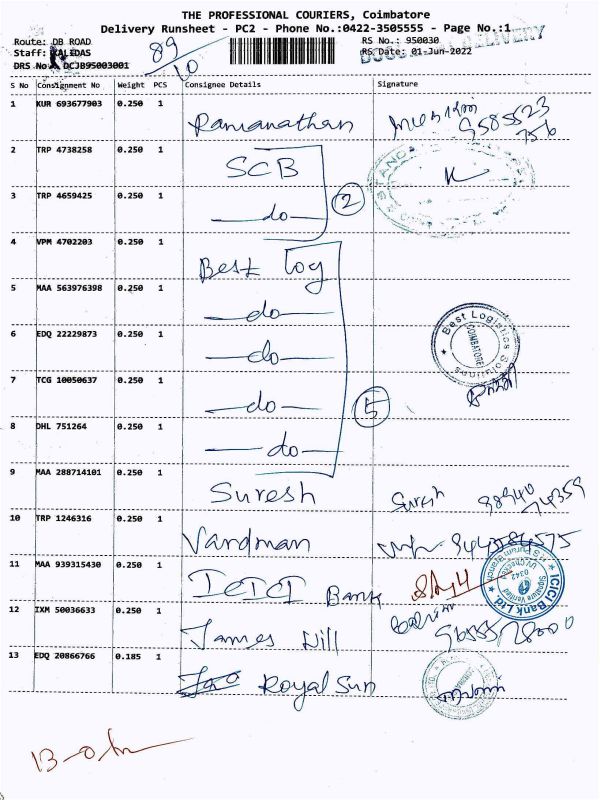 THE PROFESSIONAL COURIERS, Coimbatore
Delivery Runsheet - PC2 - Phone No.:0422-3505555 - Page No.:1
Route: DB ROAD
RS No.: 950030
Staff: KALIDAS
RS Date: 01-Jun-2022
DRS No. DCJB95003001
89/10
S No Consignment No Weight PCS Consignee Details Signature
1 KUR 693677903 0.250 1 Ramanathan
2 TRP 4738258 0.250 1 SCB
3 TRP 4659425 0.250 1 —do— 2
4 VPM 4702203 0.250 1 Best log
5 MAA 563976398 0.250 1 —do—
6 EDQ 22229873 0.250 1 —do— Best Logistics Solutions COIMBATORE
7 TCG 10050637 0.250 1 —do— 5
8 DHL 751264 0.250 1 —do—
9 MAA 288714101 0.250 1 Suresh Suresh 88940 74359
10 TRP 1246316 0.250 1 Vardman
11 MAA 939315430 0.250 1 ICICI Bank ICICI Bank Ltd.
12 IXM 50036633 0.250 1 James Nill
13 EDQ 20866766 0.185 1 Royal Sun